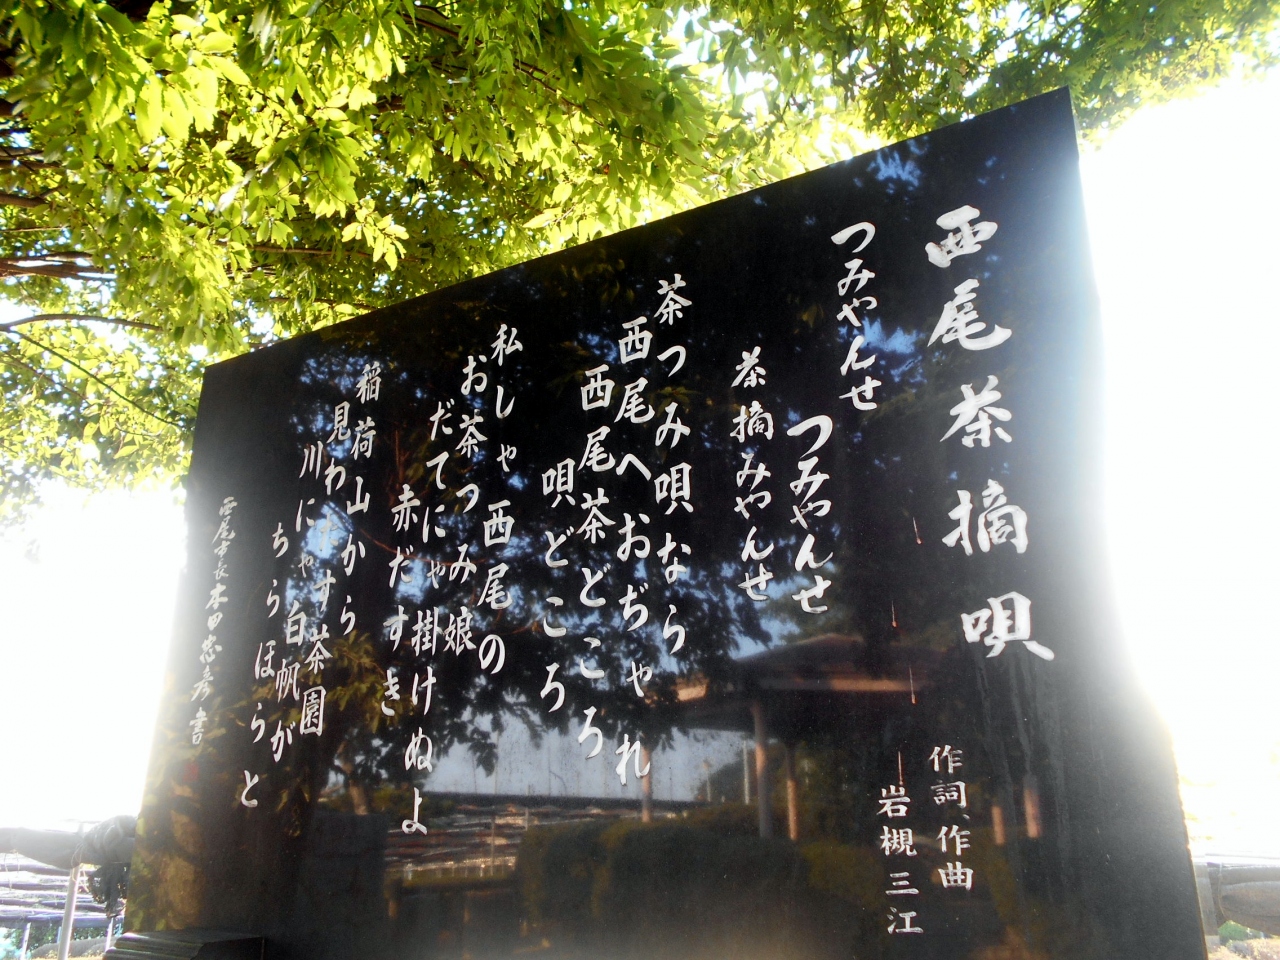 西尾茶摘唄
作詞、作曲
岩槻三江
つみやんせ
つみやんせ
茶摘みやんせ
茶つみ唄なら
西尾へおぢゃれ
西尾茶どころ
唄どころ
私しゃ西尾の
お茶つみ娘
だてにゃ掛けぬよ
赤だすき
稲荷山から
見わたす茶園
川にゃ白帆が
ちらほらと
西尾市長 本田忠彦 書